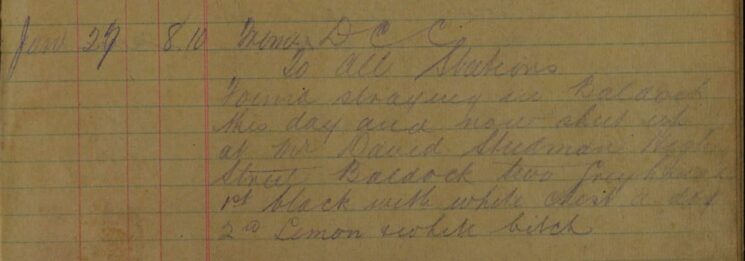 Jan 29 8.10 From D C C
To All Stations
Found straying in Baldock
this day and now shut up
at Mr David Stedman High
Street Baldock two Greyhounds
1st black with white chest a dog
2nd Lemon & white bitch